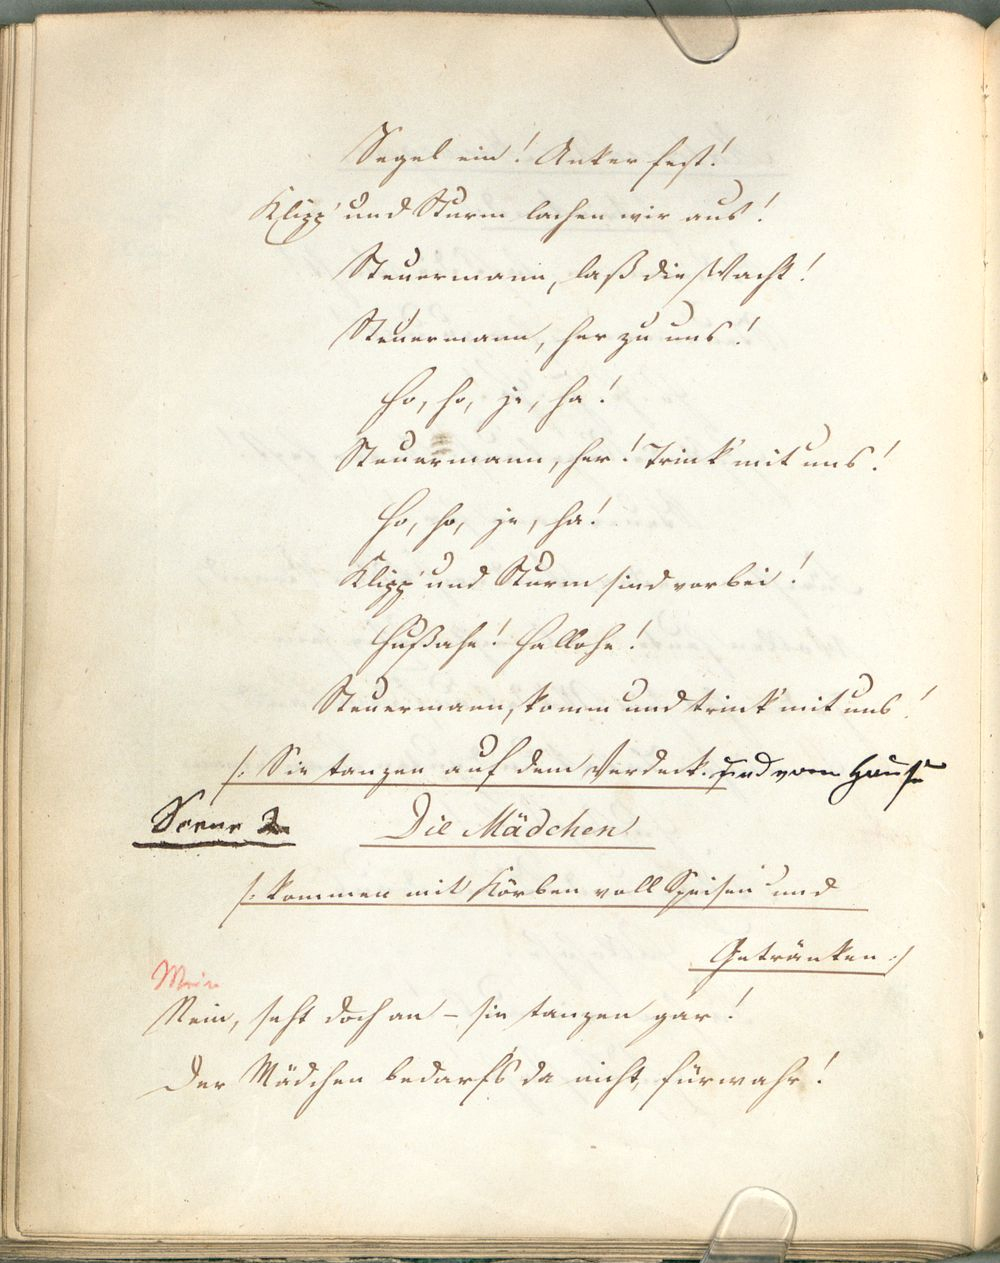 Segel ein! Anker fest!
Klipp' und Sturm lachen wir aus!
Steuermann, laß die Wacht!
Steuermann, her zu uns!
Ho, ho, je, ha!
Steuermann, her! Trink' mit uns!
Ho, ho, je, ha!
Klipp' und Sturm sind vorbei!
Hußahe! Hallohe!
Steuermann, komm und trink' mit uns!
/: Sie tanzen auf dem Verdeck. und vom Hause
Scene 2
Die Mädchen
/: kommen mit Körben voll Speisen und
Getränken :/
Mein
Nein, seht doch an – sie tanzen gar!
Der Mädchen bedarf's da nicht, fürwahr!